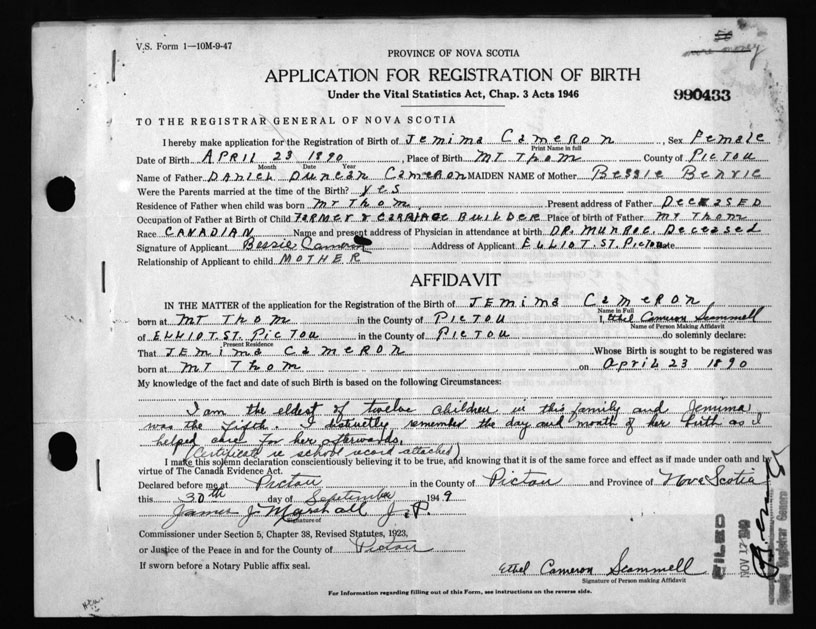 V.S. Form 1—10M-9-47
PROVINCE OF NOVA SCOTIA
APPLICATION FOR REGISTRATION OF BIRTH
Under the Vital Statistics Act, Chap. 3 Acts 1946
990433
TO THE REGISTRAR GENERAL OF NOVA SCOTIA
I hereby make application for the Registration of Birth of Jemima Cameron, Sex Female
Print Name in full
Date of Birth APRIL 23 1890, Place of Birth MT Thom County of PICTOU
Month Date Year
Name of Father DANIEL DUNCAN CAMERON MAIDEN NAME of Mother BESSIE BENVIE
Were the Parents married at the time of the Birth? Yes
Residence of Father when child was born MT Thom Present address of Father DECEASED
Occupation of Father at Birth of Child FARMER & CARRIAGE BUILDER Place of birth of Father MT Thom
Race CANADIAN Name and present address of Physician in attendance at birth DR. MUNROE. Deceased
Signature of Applicant Bessie Cameron Address of Applicant ELLIOT. ST. PICTOU
Relationship of Applicant to child MOTHER
AFFIDAVIT
IN THE MATTER of the application for the Registration of the Birth of JEMIMA CAMERON
Name in Full
born at MT Thom in the County of PICTOU I, Ethel Cameron Scammell
Name of Person Making Affidavit
of ELLIOT. ST. PICTOU in the County of PICTOU do solemnly declare:
Present Residence
That JEMIMA CAMERON Whose Birth is sought to be registered was
born at MT Thom on April 23 1890
My knowledge of the fact and date of such Birth is based on the following Circumstances:
I am the eldest of twelve children in this family and Jemima
was the fifth. I distinctly remember the day and month of her birth as I
helped care for her afterwards.
(Certificate re school record attached)
I make this solemn declaration conscientiously believing it to be true, and knowing that it is of the same force and effect as if made under oath and by
virtue of The Canada Evidence Act.
Declared before me at Pictou in the County of Pictou and Province of Nova Scotia
this 30th day of September 1949
James J. Marshall J.P.
Signature of
Commissioner under Section 5, Chapter 38, Revised Statutes, 1923,
or Justice of the Peace in and for the County of Pictou
If sworn before a Notary Public affix seal.
Ethel Cameron Scammell
Signature of Person making Affidavit
For Information regarding filling out of this Form, see instructions on the reverse side.
FILED